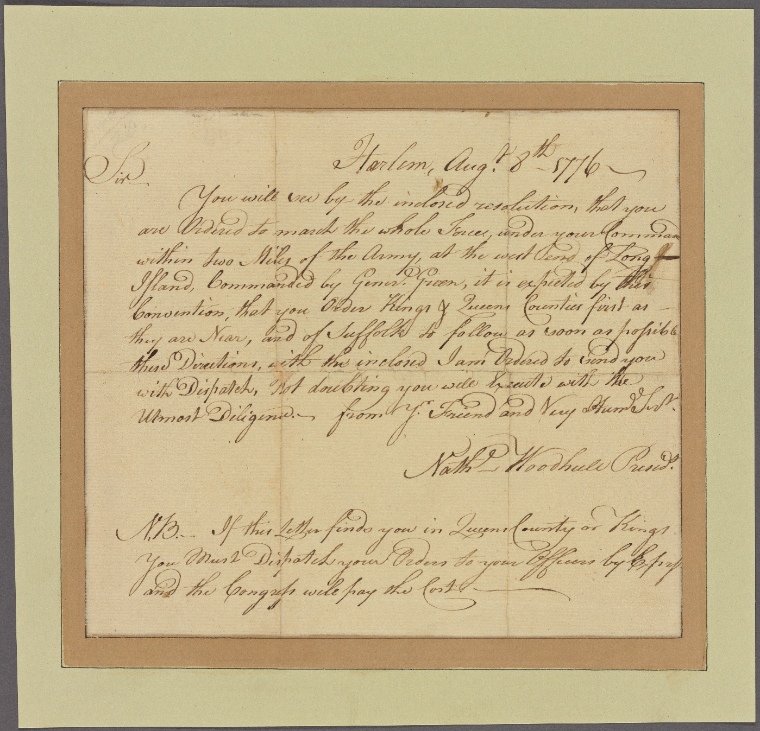 Harlem, Augt. 8th 1776
Sir
You will see by the inclosed resolution, that you
are Ordered to march the whole Force, under your Comman
within two Miles of the Army, at the west End of Long
Island, Commanded by Generl. Green, it is expected by this
Convention, that you Order Kings & Queens Counties first as
they are Near, and of Suffolk to follow as soon as possible
these Directions, with the inclosed I am Ordered to send you
with Dispatch, Not doubting you will Execute with the
Utmost Diligence. from Yr. Friend and Very Humbl Servt.
Nathl Woodhull Presidt.
N,B.. If this Letter finds you in Queens County or Kings
You Must Dispatch your Orders to your Officers by Express
and the Congress will pay the Cost